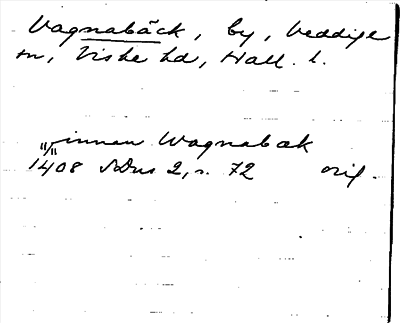 Vagnabäck, by, Veddige
sn, Viske hd, Hall. l.
innan Wagnabæk
1408 SDns 2, s. 72 orig.